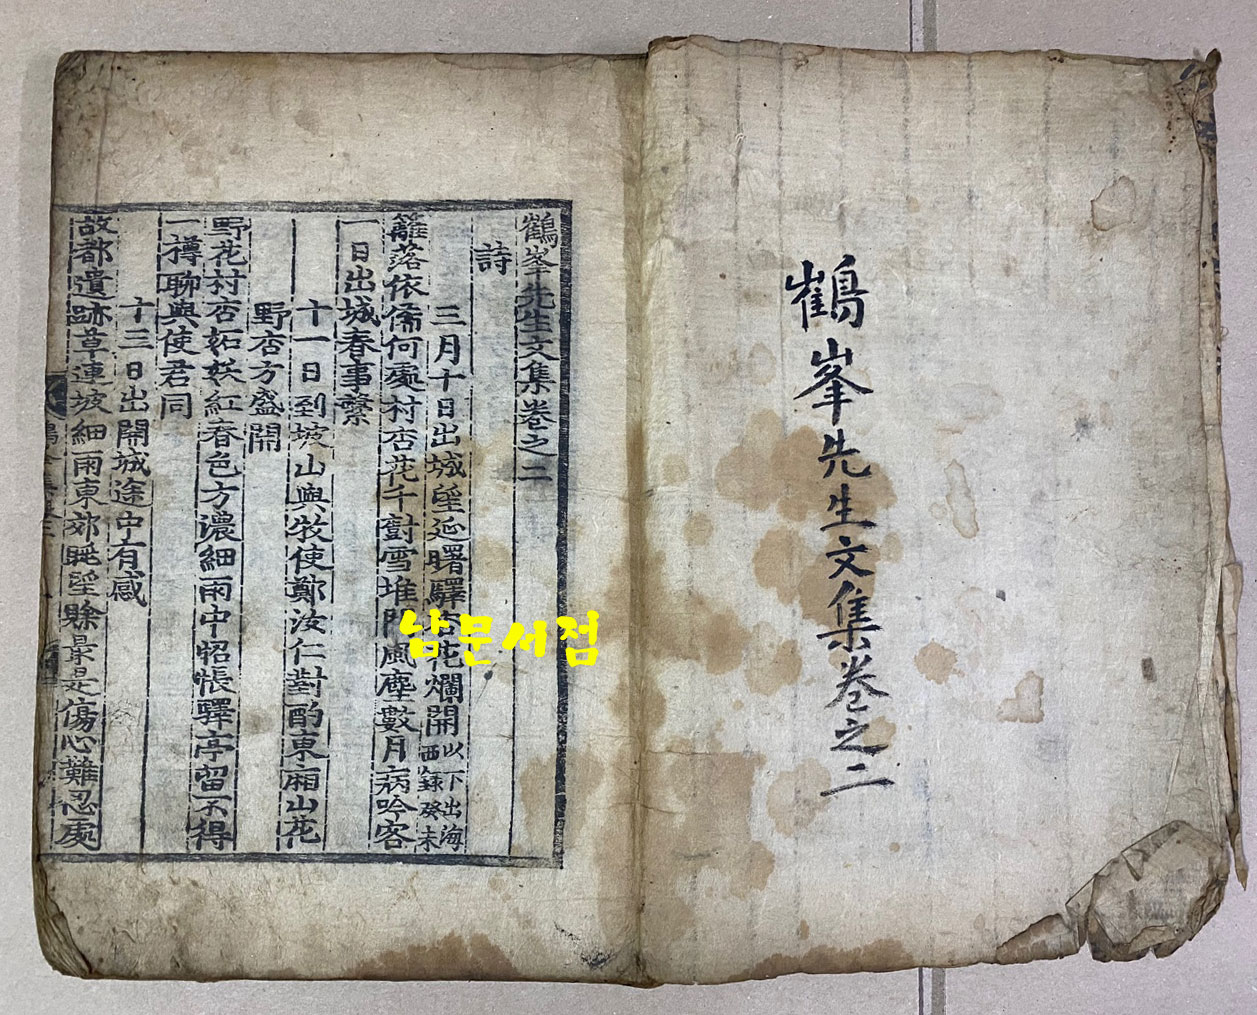 鶴峯先生文集卷之二
鶴峯先生文集卷之二
詩
三月十日出城望延曙驛杏花爛開以下出海西錄癸未
籬落依俙何處村杏花千對雪堆門風塵數月病吟客
一日出城春事繁
十一日到坡山與牧使鄭汝仁對酌東廂山花
野杏方盛開
野花村杏妬妖紅春色方濃細雨中怊悵驛亭留不得
一樽聊與使君同
十三日出開城途中有感
故都遺跡草連坡細雨東郊眺望賖最是傷心難忍處
남문서점